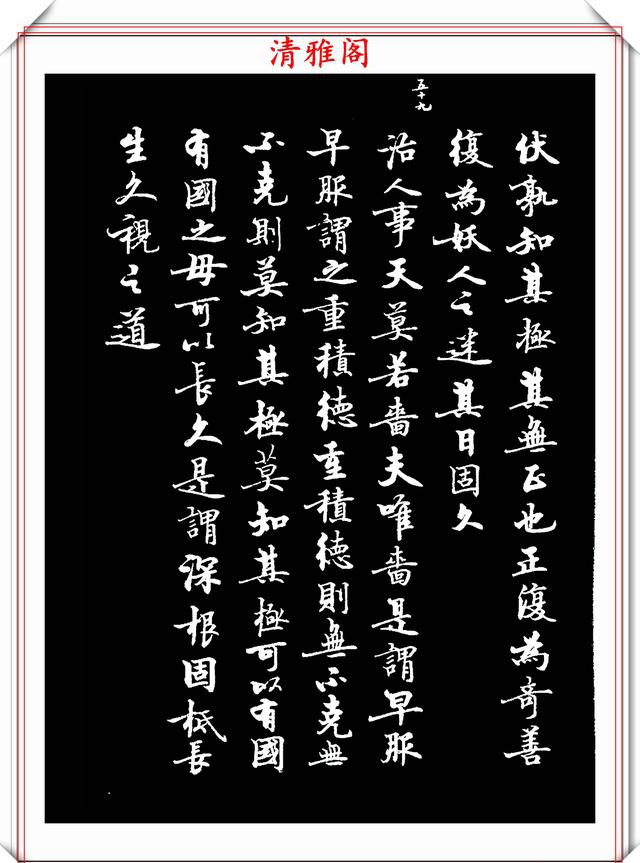 清雅阁
伏孰知其極其無正也正復為奇善
復為妖人之迷其日固久
五十九
治人事天莫若嗇夫唯嗇是謂早服
早服謂之重積德重積德則無不克無
不克則莫知其極莫知其極可以有國
有國之母可以長久是謂深根固柢長
生久視之道